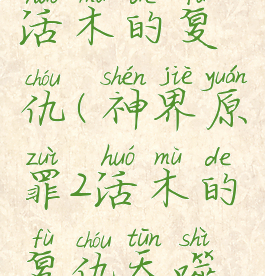 huó mù de fù
活木的复
chóu shén jiè yuán
仇(神界原
zuì huó mù de
罪2活木的
fù chóu tūn shì
复仇吞噬